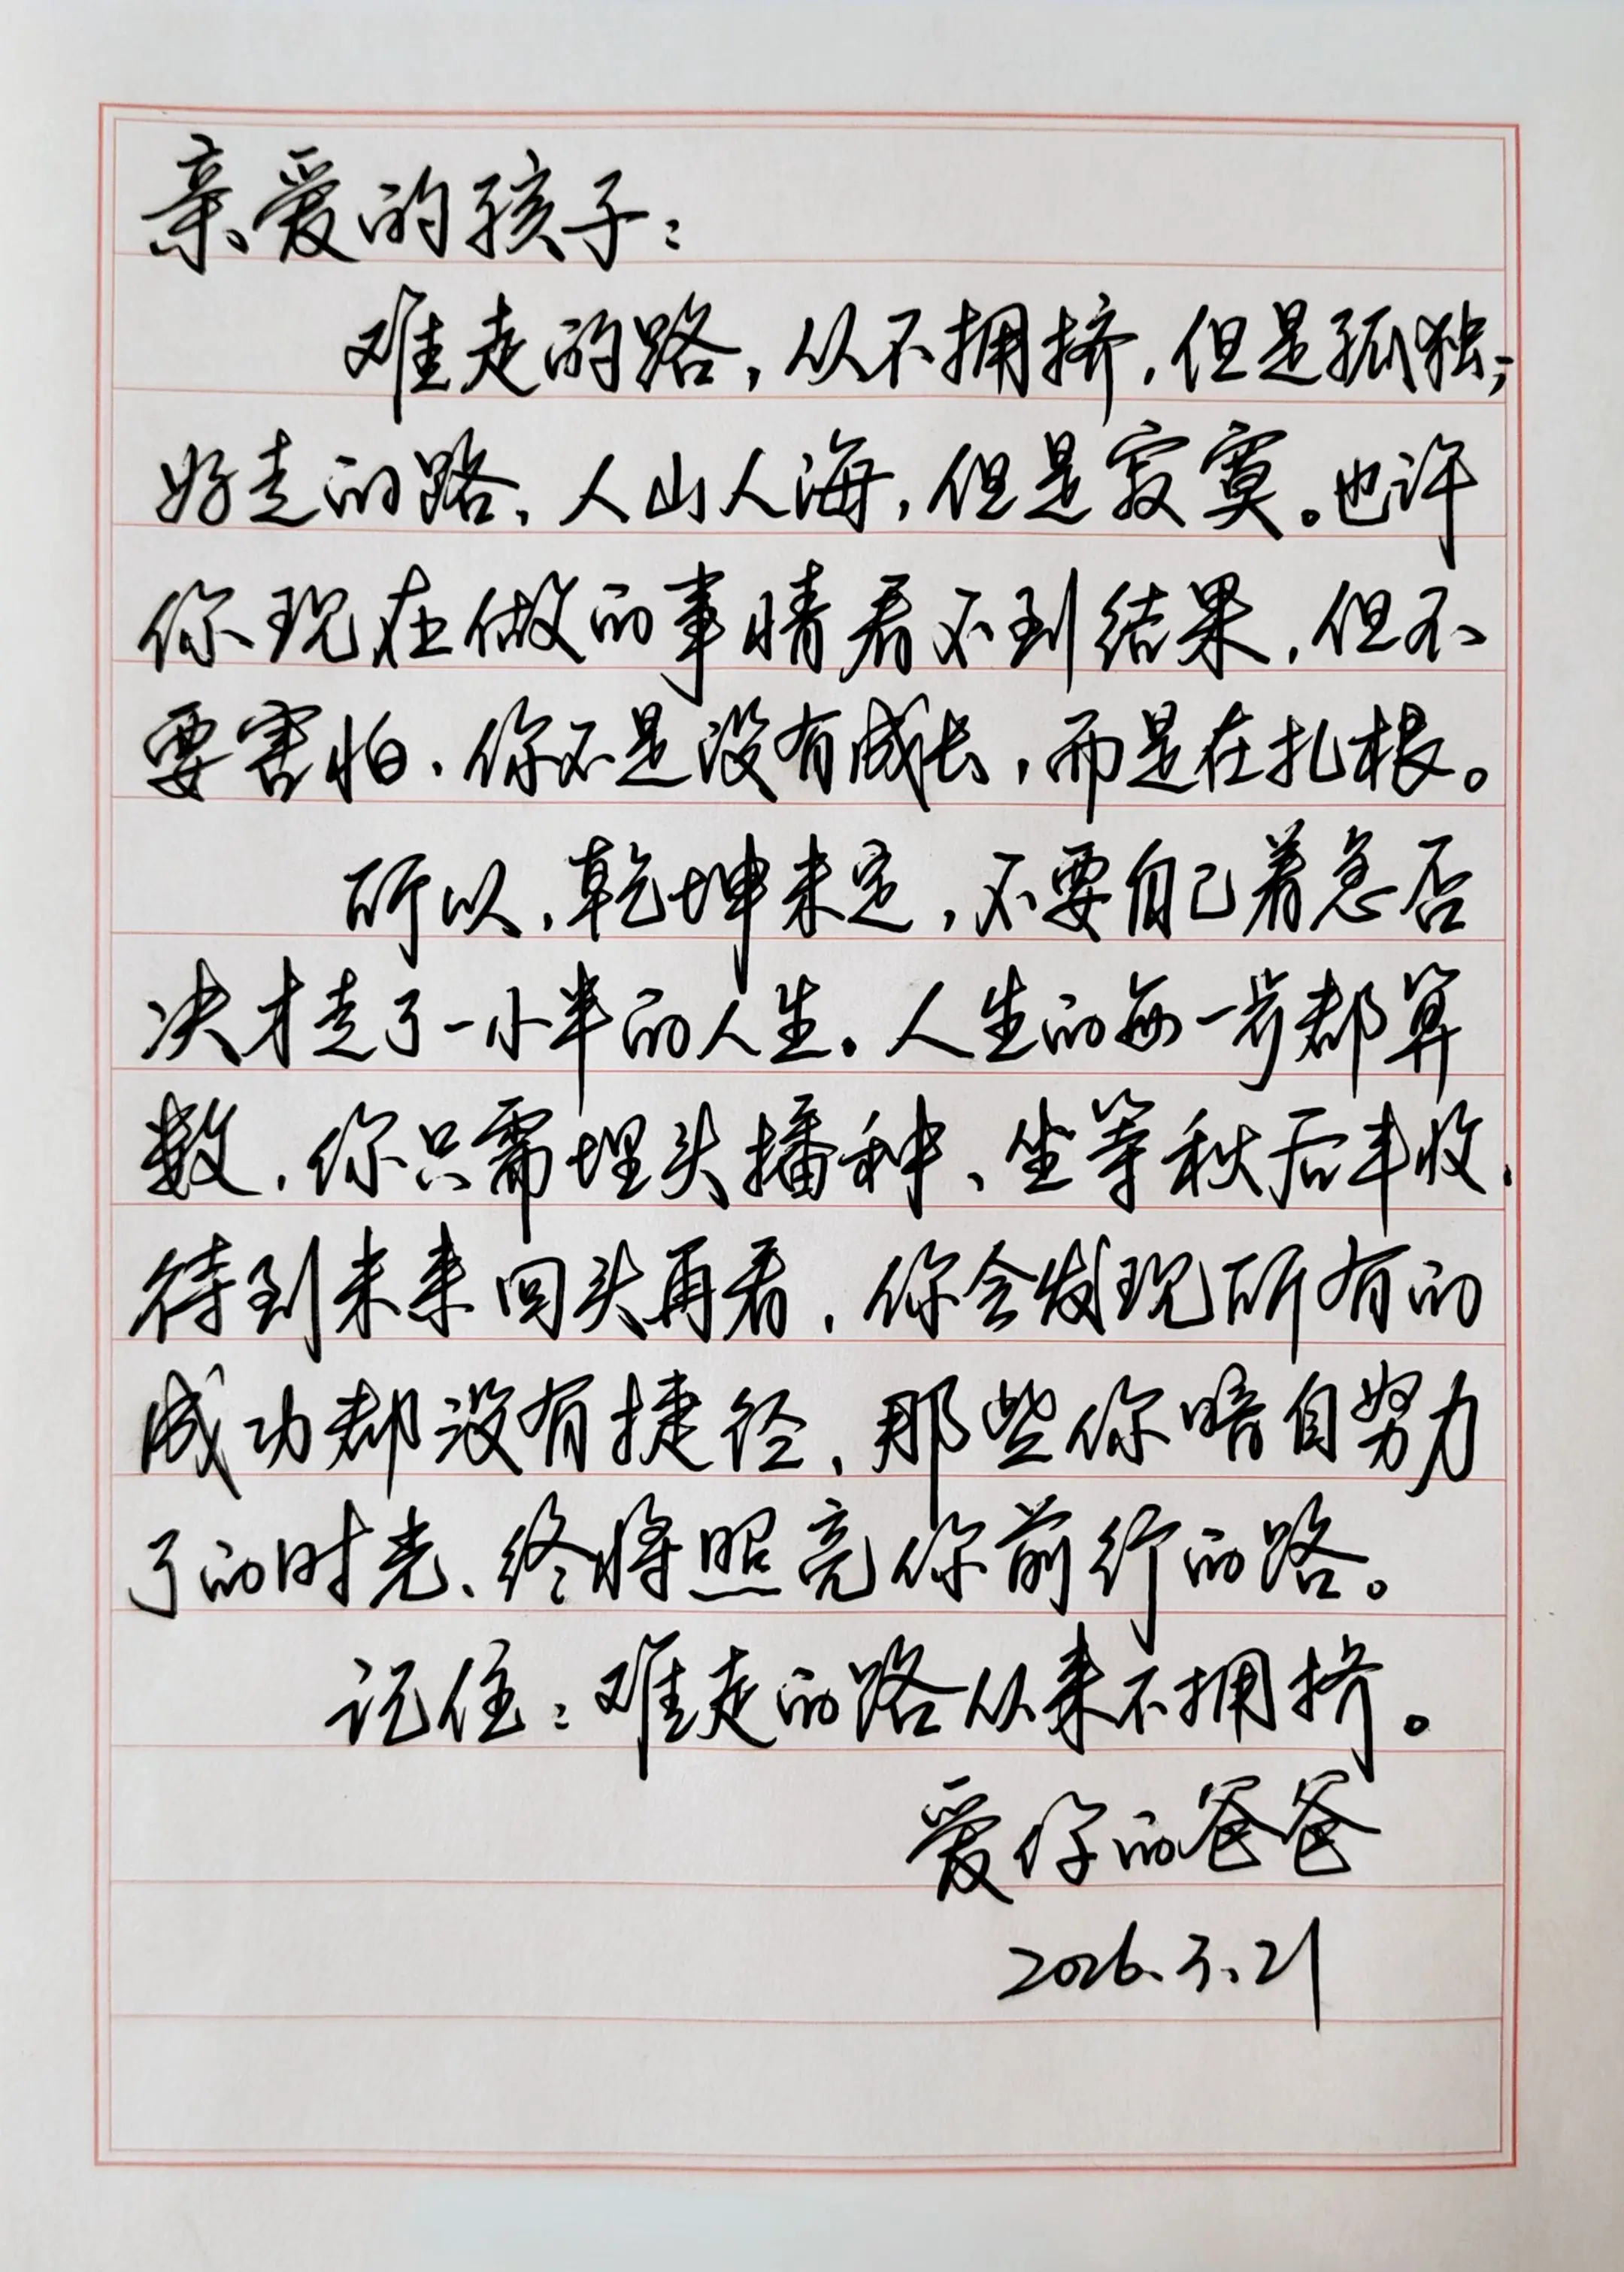 亲爱的孩子：
难走的路，从不拥挤，但是孤独；
好走的路，人山人海，但是寂寞。也许
你现在做的事情看不到结果，但不
要害怕，你不是没有成长，而是在扎根。
所以，乾坤未定，不要自己着急否
决才走了一小半的人生。人生的每一步都算
数，你只需埋头播种、坐等秋后丰收，
待到未来回头再看，你会发现所有的
成功都没有捷径、那些你暗自努力
了的时光、终将照亮你前行的路。
记住：难走的路从来不拥挤。
爱你的爸爸
2026.3.21